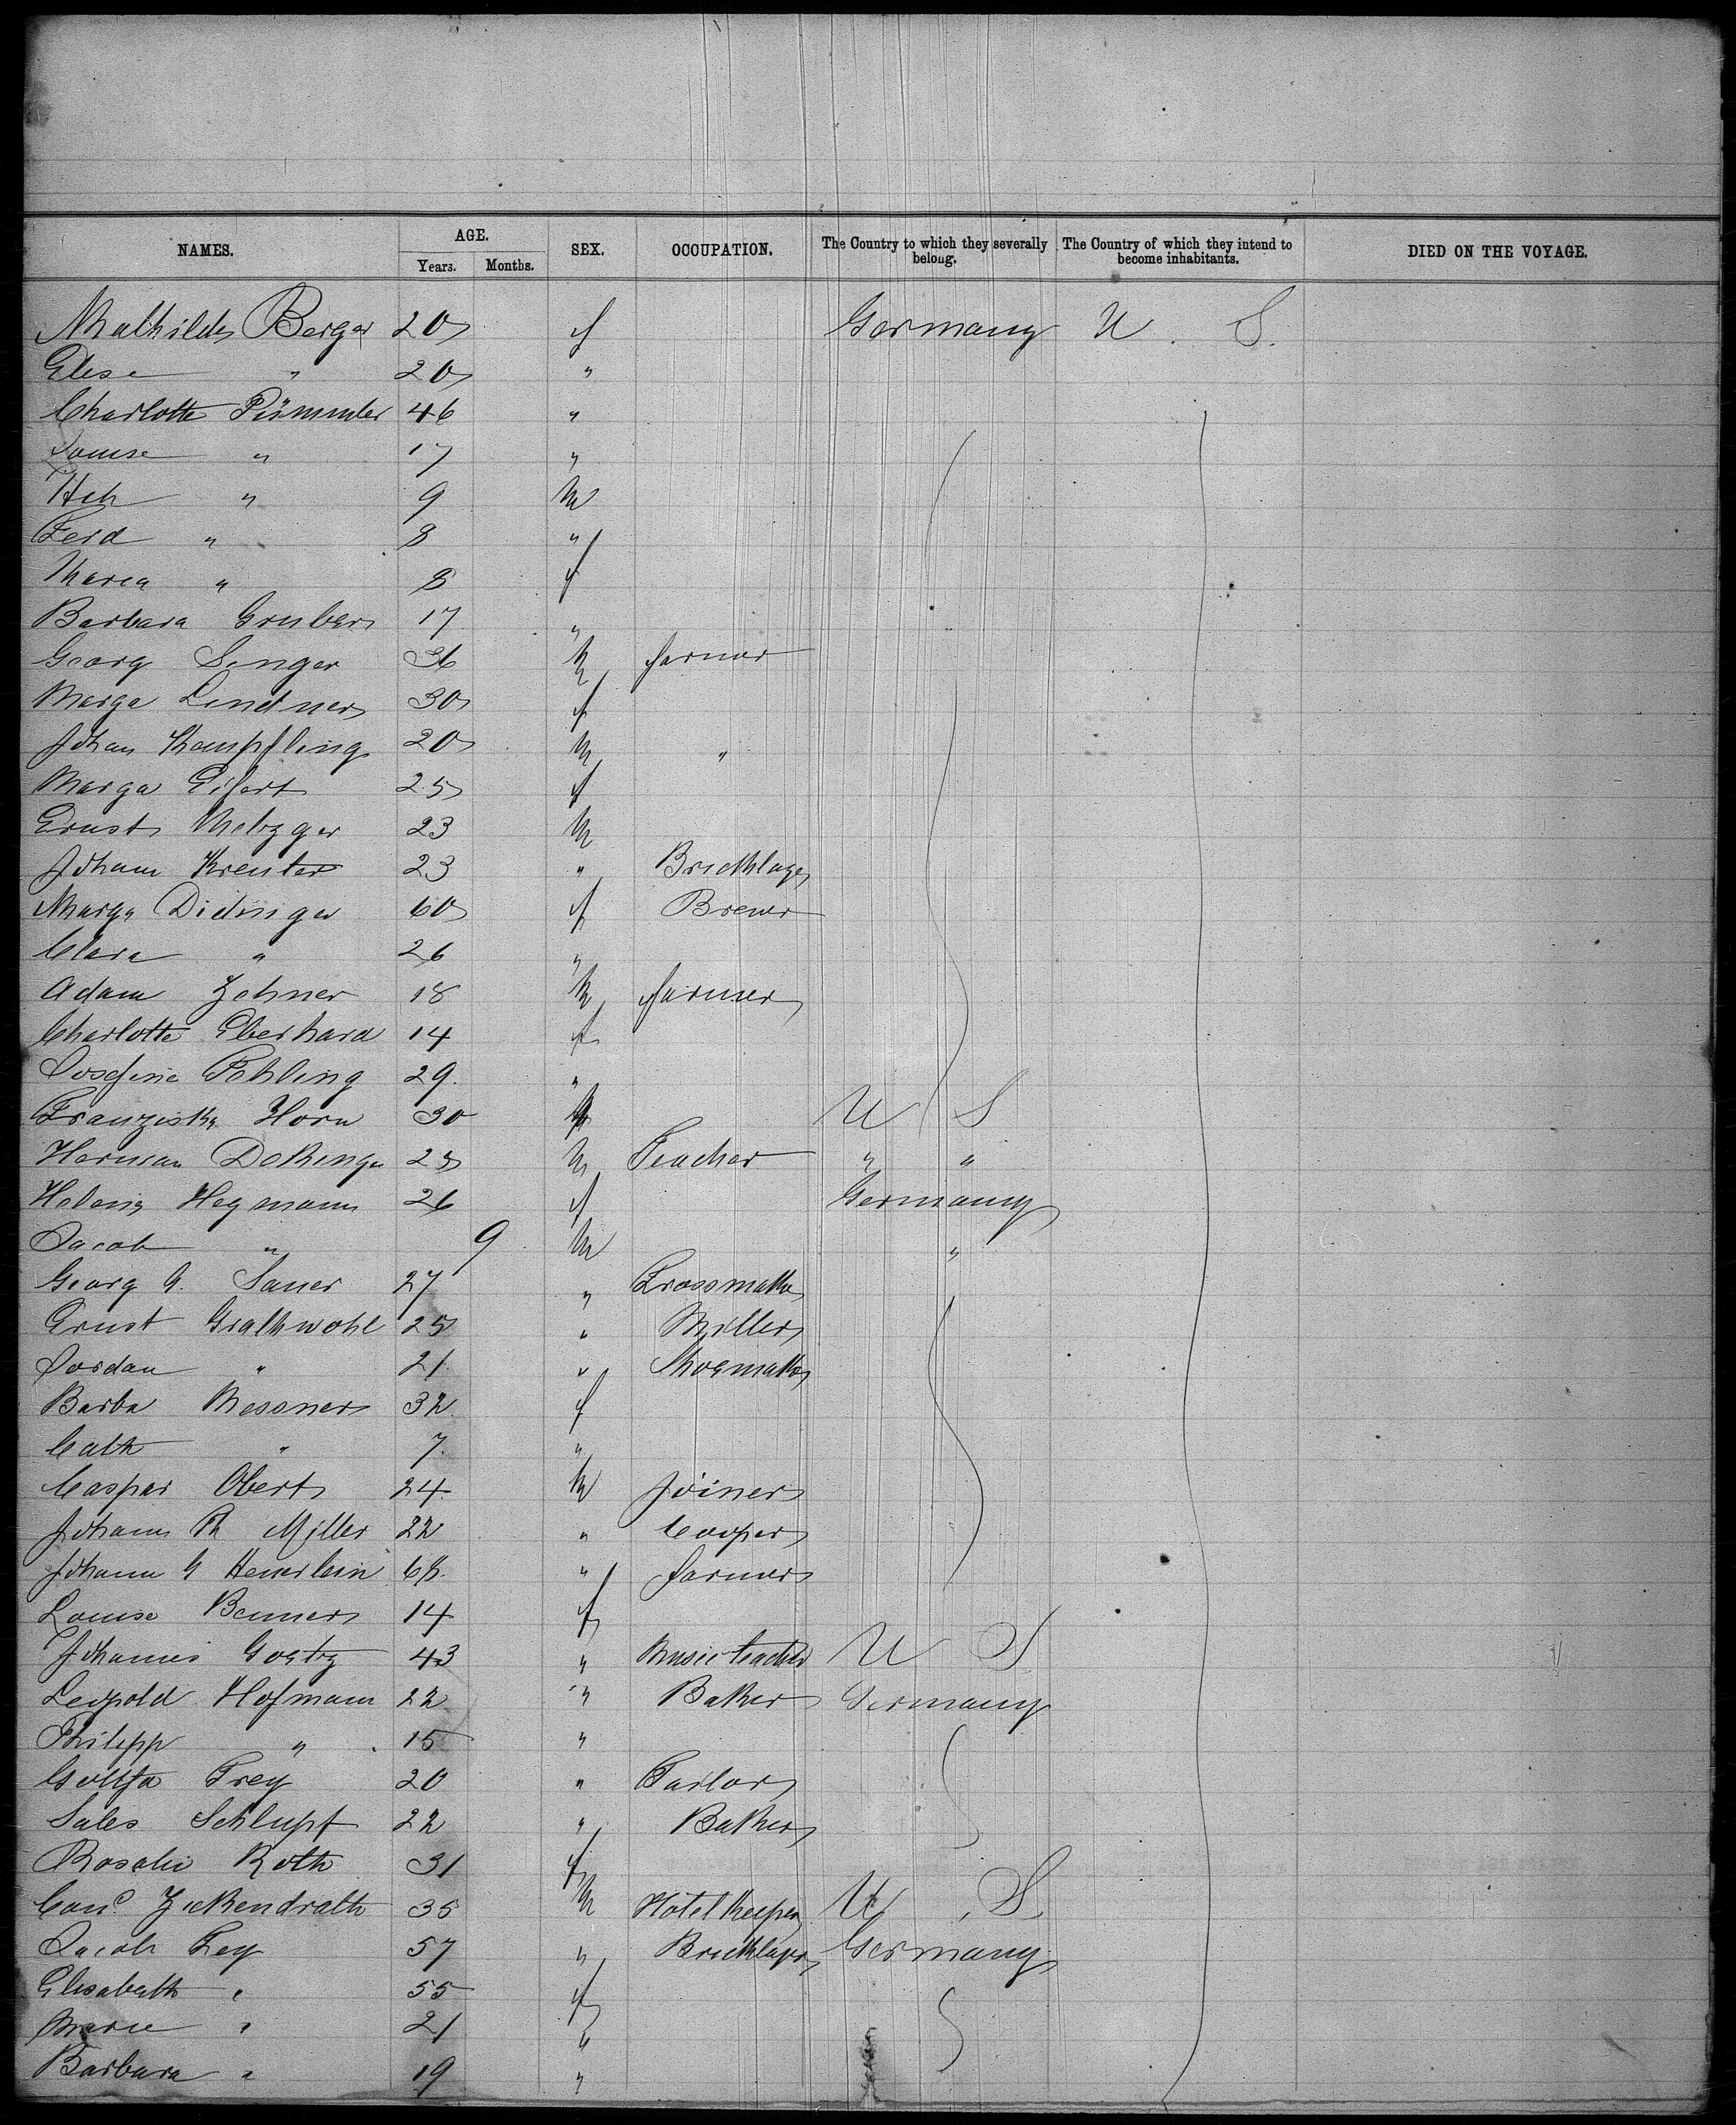 NAMES. AGE. SEX. OCCUPATION. The Country to which they severally belong. The Country of which they intend to become inhabitants. DIED ON THE VOYAGE.
Years. Months.
Mathilde Berger 20 f Germany U. S.
Elise " 20 "
Charlotte Pümmler 46 "
Louise " 17 "
Hch " 9 M
Ferd " 8 "
Maria " 8 f
Barbara Gruber 17 "
Georg Singer 36 M farmer
Marga Lindner 30 f
Johan Kampfling 20 M "
Marga Eifert 25 f
Ernst Metzger 23 M
Johann Kreuter 23 " Bricklayer
Marga Didinger 60 f Brewer
Clara " 26 "
Adam Zehner 18 M farmer
Charlotte Eberhard 14 f
Josefine Pehling 29. "
Franziska Horn 30 U S
Herman M Teacher " "
Helena Hegmann 26 f Germany
Jacob " 9 M "
Georg G. Sauer 27 "
Ernst Grathwohl 25 " Miller
Jordan " 21. " Shoemaker
Barba Messner 32 f
Cath " 7. "
Caspar Obert 24 M Joiner
Johann Ph Miller 22 " Cooper
Johann G Heuerlein 68. " farmer
Louise Benner 14 f
Johannes Goetz 43 " Music teacher U S
Leopold Hofmann 22 " Baker Germany
Philipp " 15 "
Frey 20 " Tailor
Sales Schlupf 22 " Baker
Rosalie Roth 31 f
Conr. Zickendrath 35 M Hotel Keeper U. S.
Jacob Fey 57 " Bricklayer Germany
Elisabeth " 55 f
Marie " 21 "
Barbara " 19 "